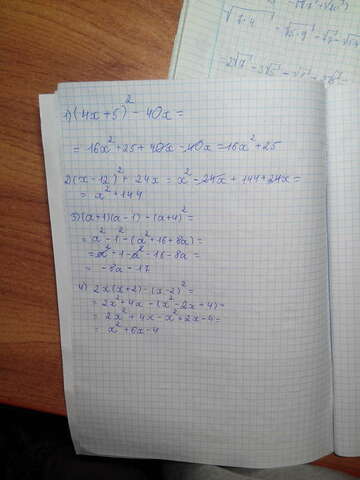 1) (4x+5)² - 40x =
= 16x² + 25 + 40x - 40x = 16x² + 25
2) (x-12)² + 24x = x² - 24x + 144 + 24x =
= x² + 144
3) (a+1)(a-1) - (a+4)² =
= a² - 1² - (a² + 16 + 8a) =
= a² - 1 - a² - 16 - 8a =
= -8a - 17
4) 2x(x+2) - (x-2)² =
= 2x² + 4x - (x² - 2x + 4) =
= 2x² + 4x - x² + 2x - 4 =
= x² + 6x - 4